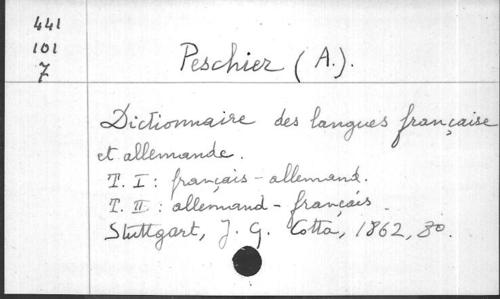 441
101
7
Peschier (A.).
Dictionnaire des langues française
et allemande.
T. I : français - allemand.
T. II : allemand - français.
Stuttgart, J. G. Cotta, 1862, 80.